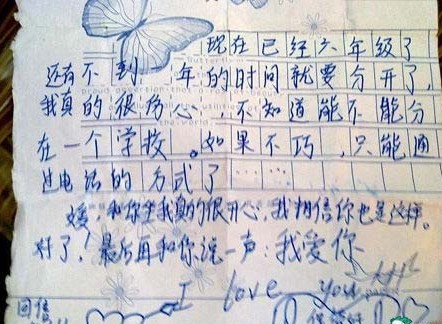 现在已经六年级了
还有不到一年的时间就要分开了,
我真的很伤心,不知道能不能分
在一个学校。如果不巧,只能通
过电话的方式了……
媛,和你坐我真的很开心,我相信你也是这样。
对了!最后再和你说一声:我爱你
I love you
回信